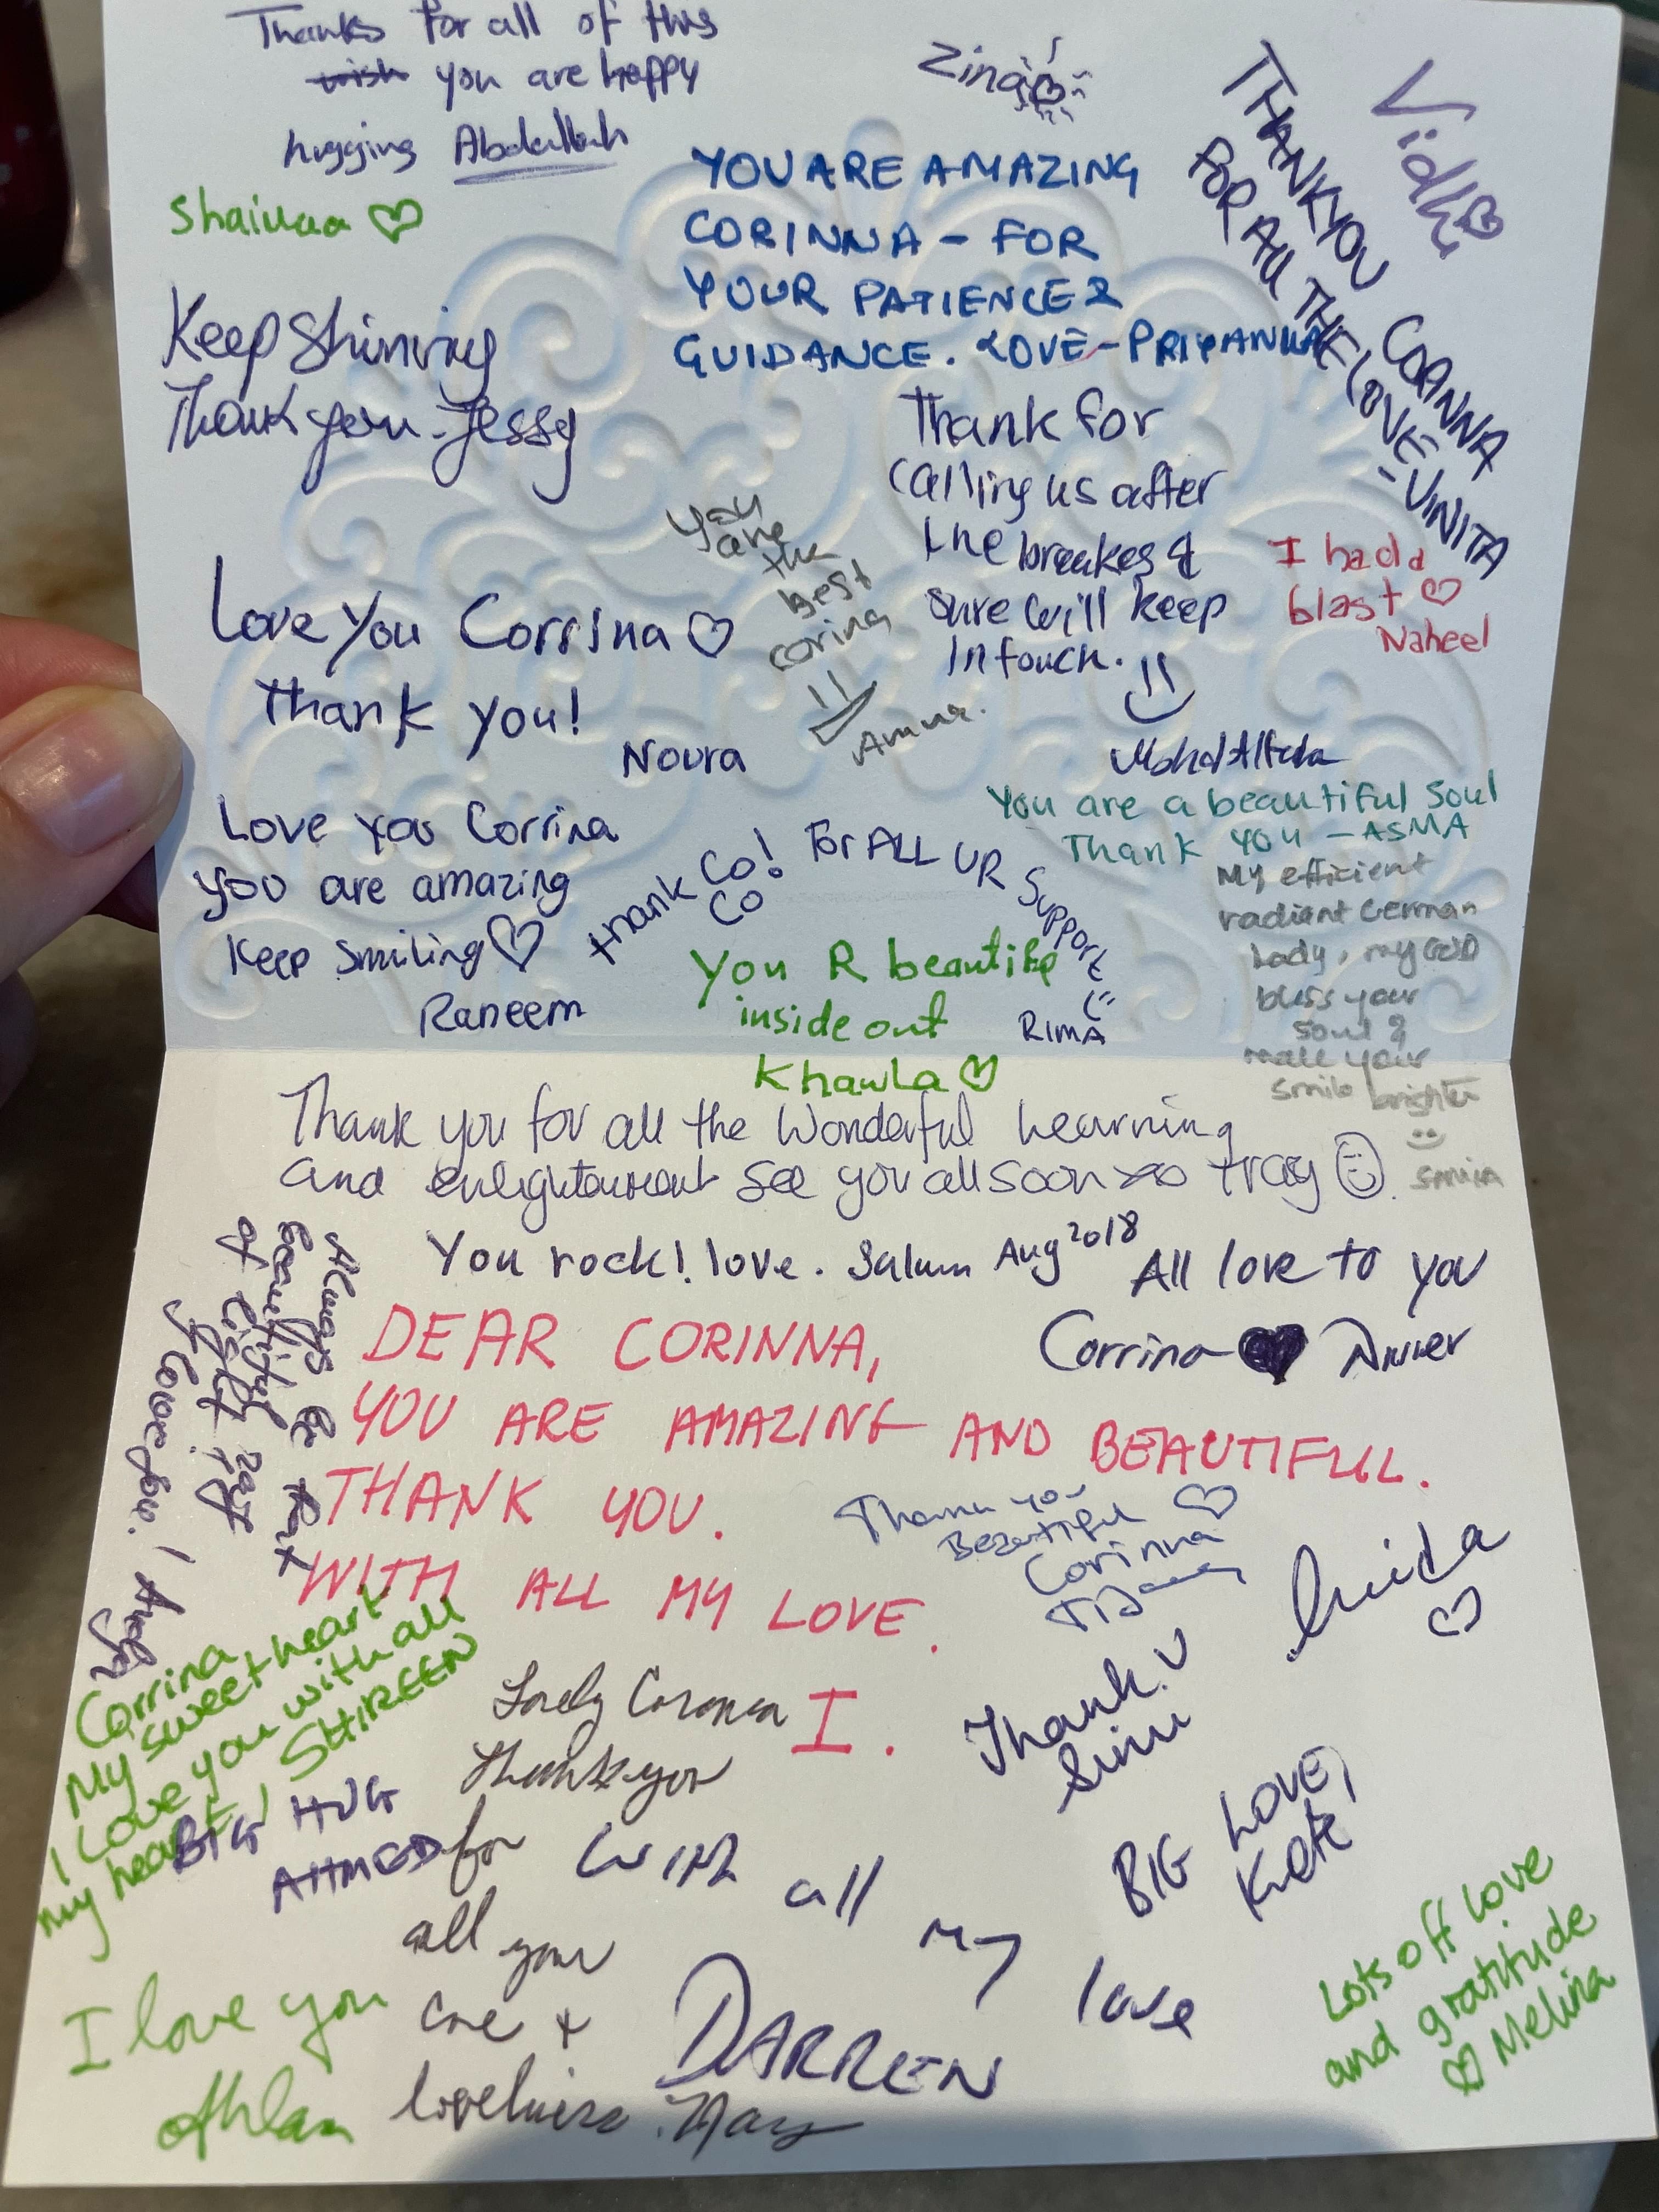 Thanks for all of this
wish you are happy
hugging Abdallah
Zina
Vidhi
Shaimaa
YOU ARE AMAZING
CORINNA - FOR
YOUR PATIENCE &
GUIDANCE. LOVE - PRIYANKA
THANKYOU CORNNA
FOR All THE LOVE
- VINITA
Keep Shinning
Thank you. Jessy
Thank for
calling us after
the breakes &
sure will keep
In touch.
I had a
blast
Naheel
You
are
the
best
corina
Amna.
Love You Corrina
Thank you!
Noura
You are a beautiful Soul
Thank You - ASMA
Love you Corrina
you are amazing
Keep Smiling
Raneem
thank CoCo! For ALL UR Support
RIMA
You R beautifp
inside out
Khawla
My efficient
radiant German
Lady, my GOD
bless your
soul &
make your
smile brighter
Sonia
Thank you for all the Wonderful Learning
and enlightenment see you all soon xo Tracy
You rock! love. Salum Aug 2018
All love to you
Corrina
Always be that
beautiful ray
of light. I
love you!
DEAR CORINNA,
YOU ARE AMAZING AND BEAUTIFUL.
THANK YOU.
WITH ALL MY LOVE.
I.
Thank you
Beautiful
Corinna
Corrina
My sweetheart
I Love you with all
my heart SHIREEN
BIG HUG
AHMED
Lovely Coronna
Thank you
for
all your
care +
loveliness. May
Thank U
BIG LOVE,
Kate
With all my love
DARREN
I love you
Lots off love
and gratitude
Melina